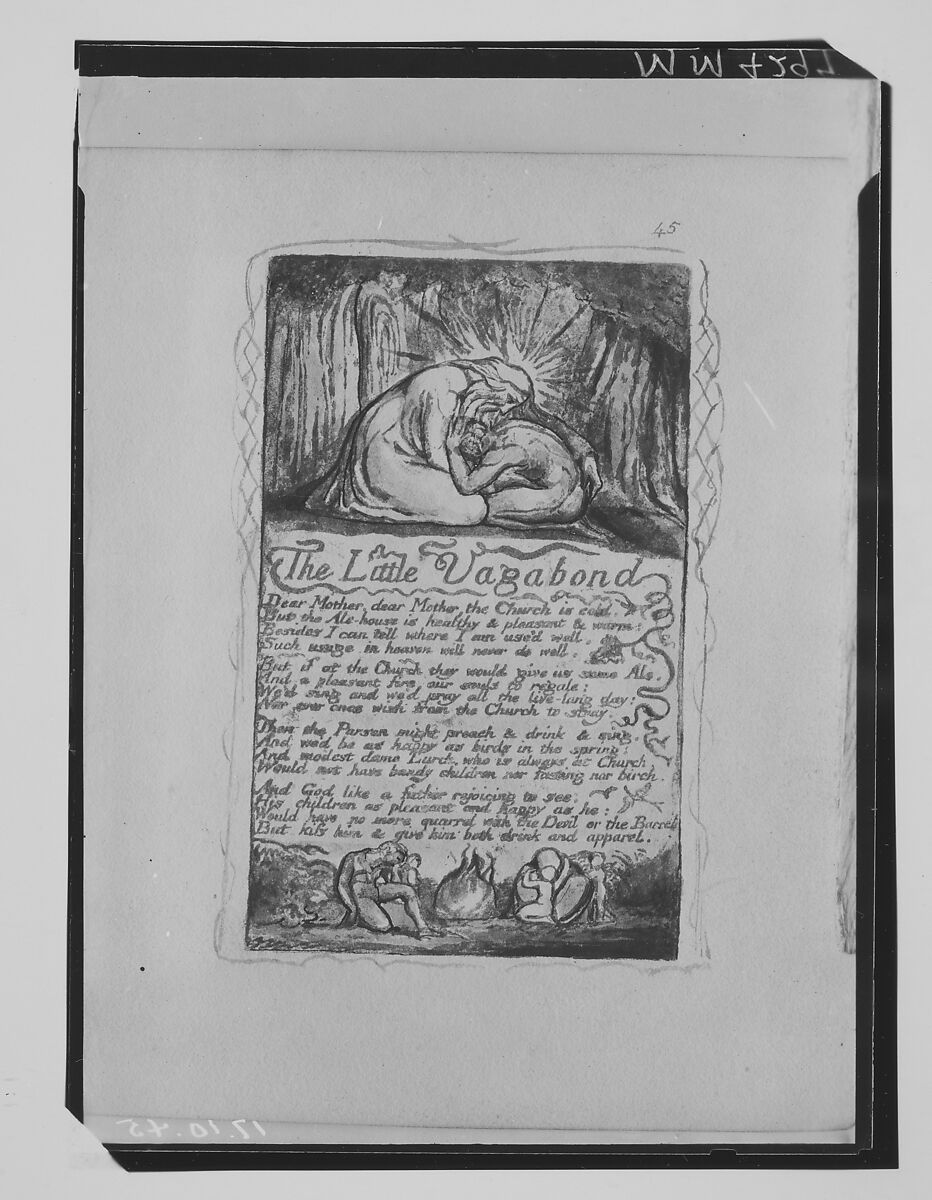 WM 4297
45
The Little Vagabond
Dear Mother, dear Mother, the Church is cold.
But the Ale-house is healthy & pleasant & warm:
Besides I can tell where I am use'd well.
Such usage in heaven will never do well.
But if at the Church they would give us some Ale.
And a pleasant fire, our souls to regale:
We'd sing and we'd pray all the live-long day:
Nor ever once wish from the Church to stray.
Then the Parson might preach & drink & sing.
And we'd be as happy as birds in the spring:
And modest dame Lurch, who is always at Church
Would not have bandy children nor fasting nor birch.
And God like a father rejoicing to see.
His children as pleasant and happy as he:
Would have no more quarrel with the Devil or the Barrel
But kiss him & give him both drink and apparel.
17.10.45